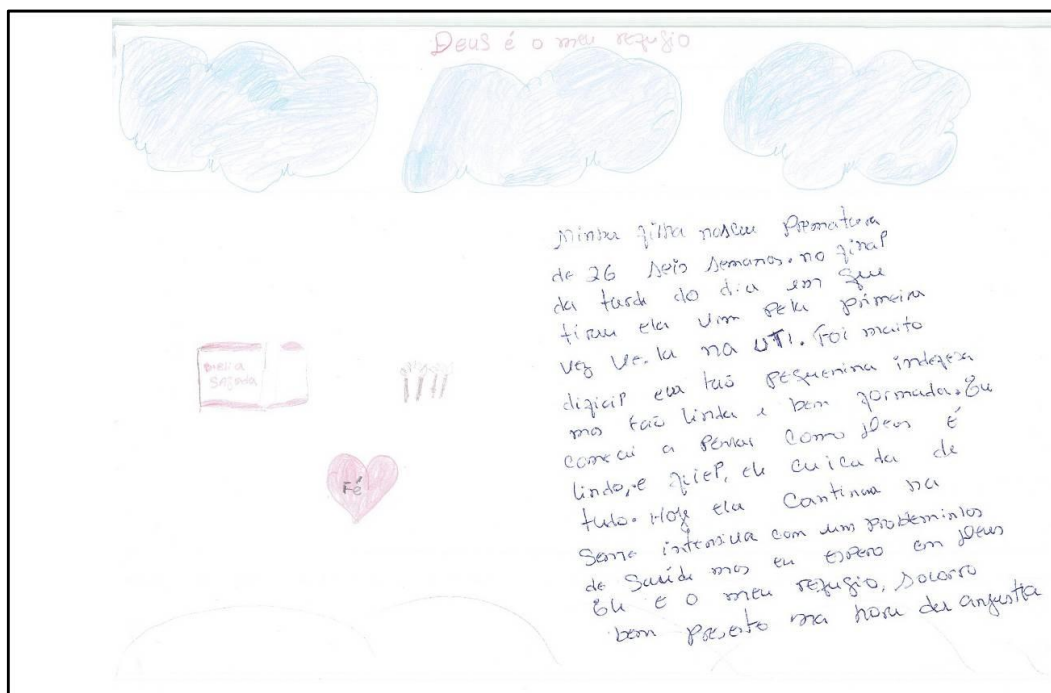 Deus é o meu refugio
Minha filha nasceu Prematura
de 26 seis semanas. no final
da tarde do dia em que
tiram ela vim Pela Primeira
vez ve-la na UTI. Foi muito
dificil ela tão Pequenina indefesa
mas tão linda e bem formada. Eu
comecei a Pensar como Deus é
lindo, e fiel, ele cuicada de
tudo. Hoje ela Continua na
Seme intensiva com um Probleminhos
de Saúde mas eu espero em Deus
Ele é o meu refugio, Socorro
bem Presente na hora da angustia
Biblia
Sagrada
Fé